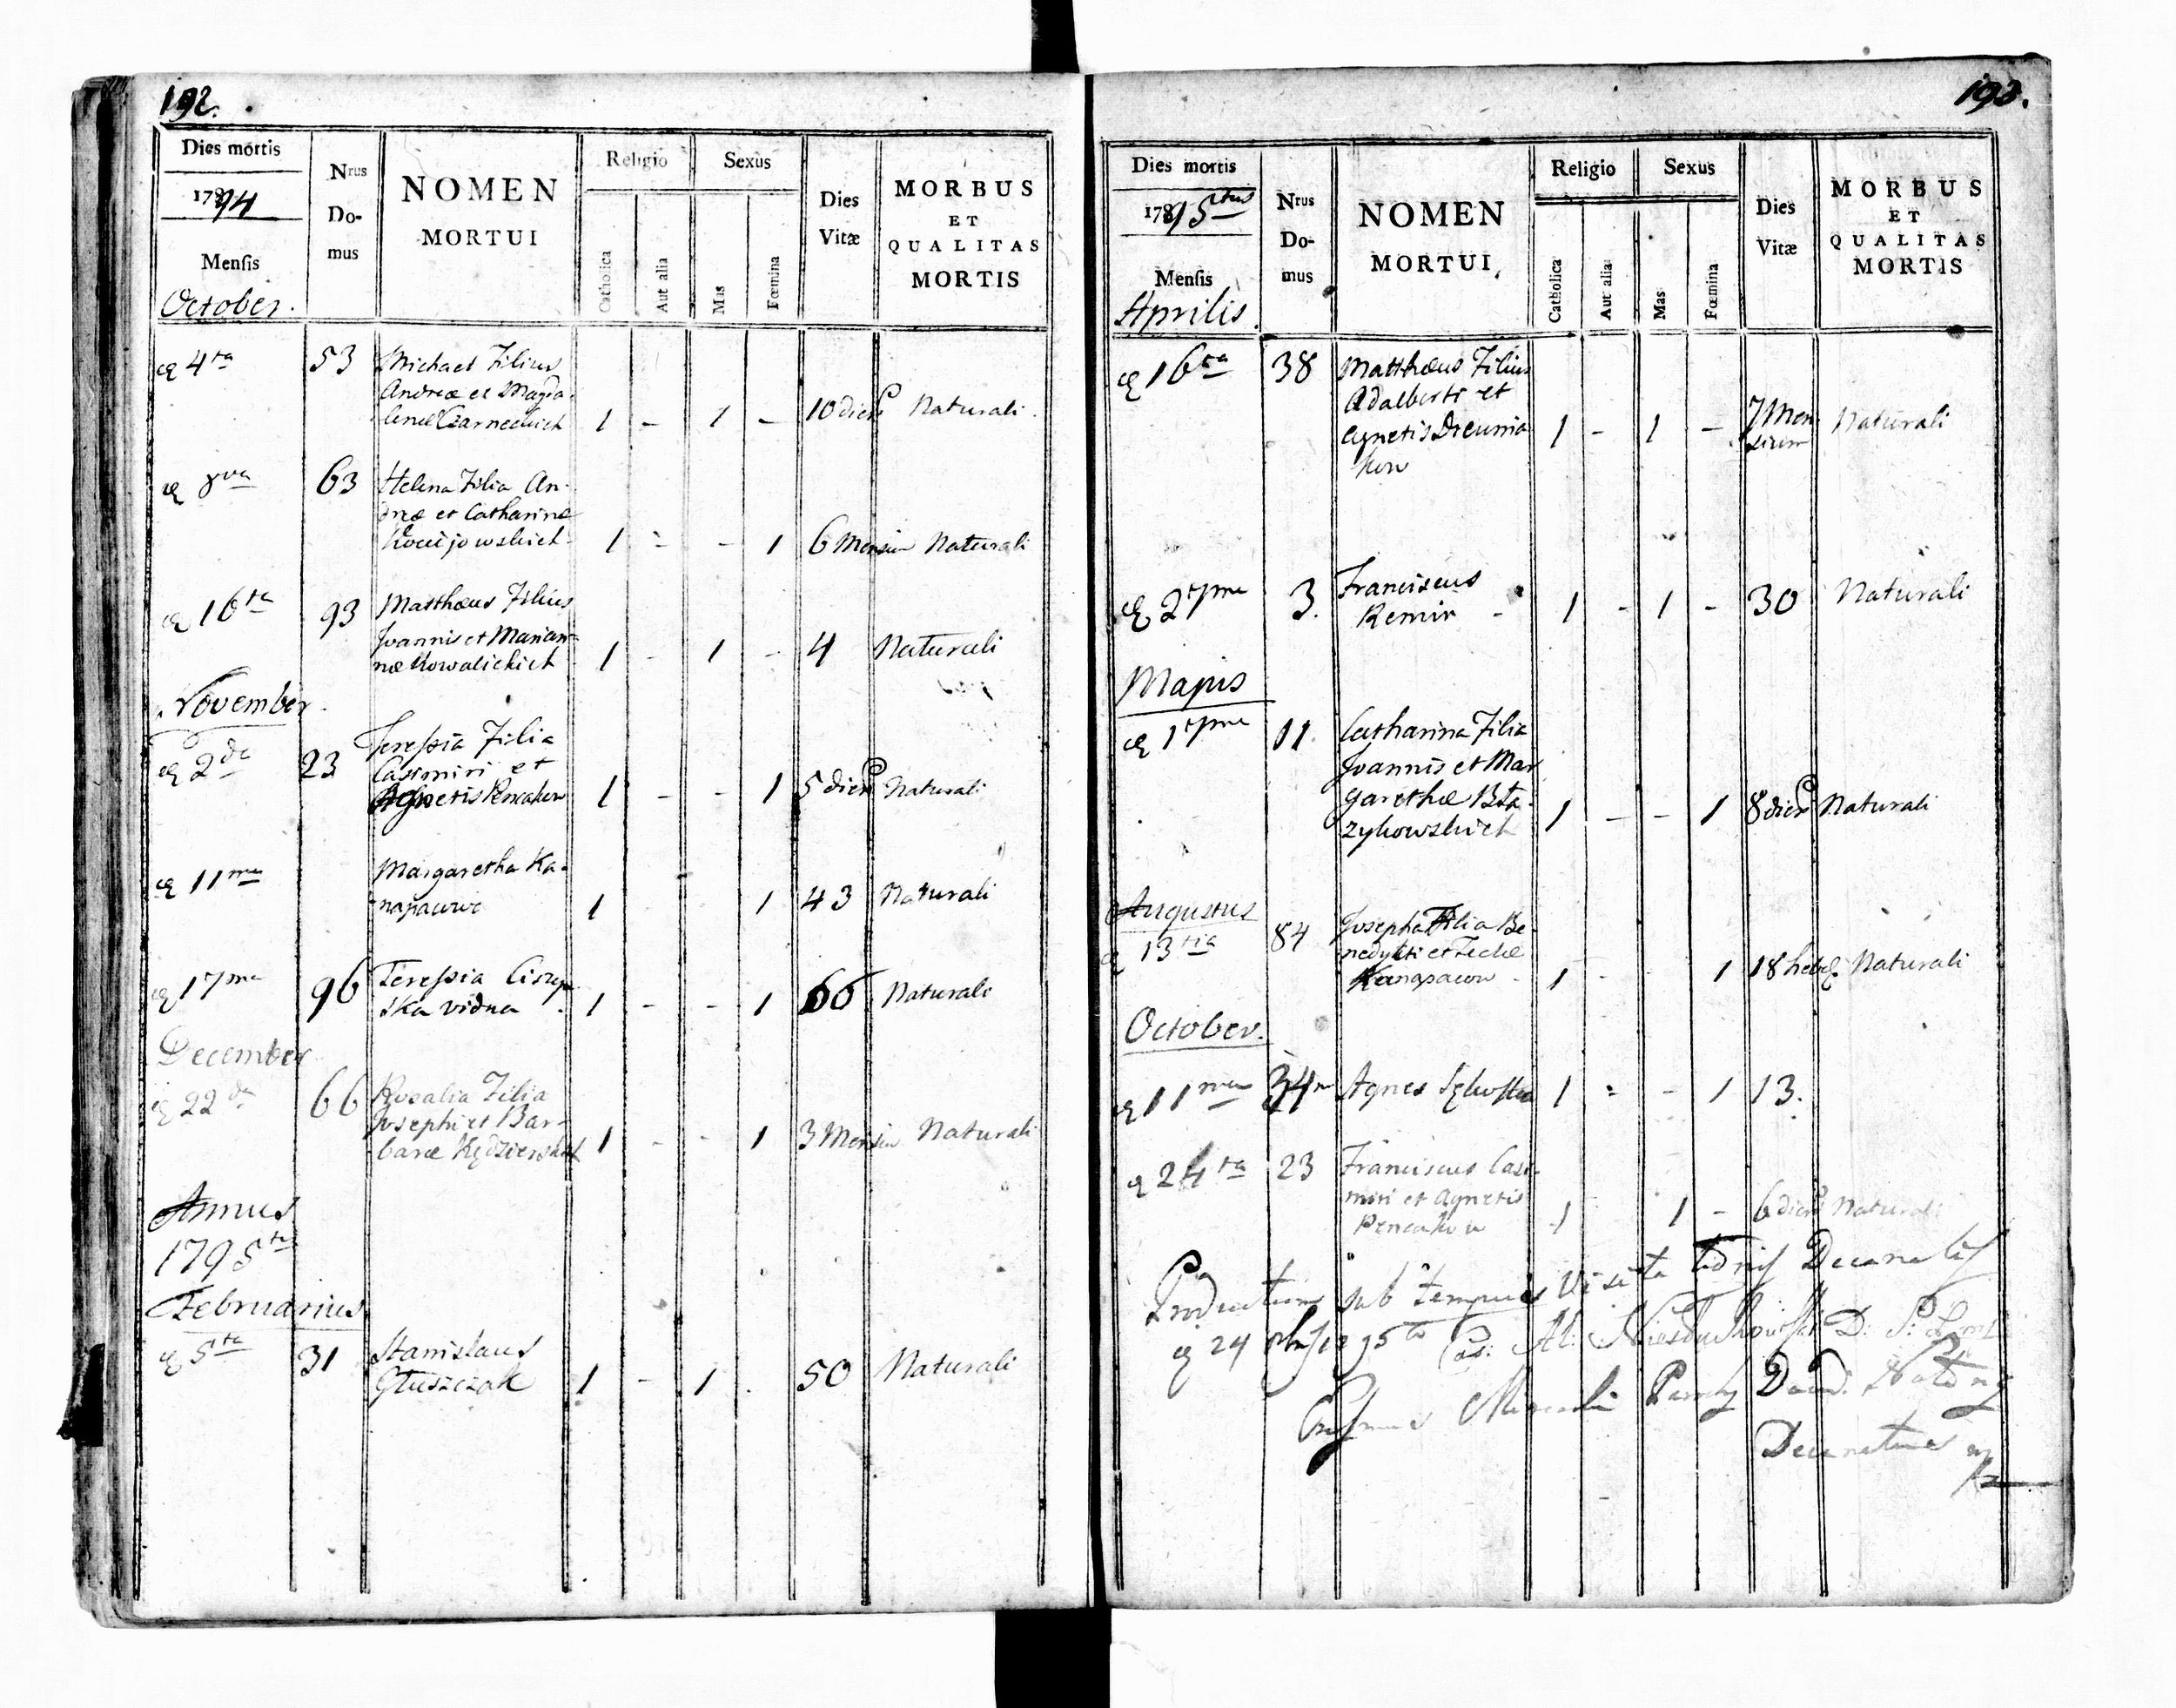 192.
Dies mortis
1794
Mensis
October.
Nrus
Do-
mus
NOMEN
MORTUI
Religio
Catholica
Aut alia
Sexus
Mas
Fœmina
Dies
Vitæ
MORBUS
ET
QUALITAS
MORTIS
4ta 53 Michael Filius
Andreæ et Magda-
lenæ Czarneckich 1 - 1 - 10 dier Naturali.
8va 63 Helena Filia An-
dreæ et Catharinæ
1 - - 1 6 Mensiu Naturali
16ta 93 Matthæus Filius
Joannis et Marian-
næ Kowalickich 1 - 1 - 4 Naturali
November
2da 23 Teressia Filia
Casimiri et
Agnetis Pencakow 1 - - 1 5 dier Naturali
11ma Margaretha Ka-
napacwic 1 1 43 Naturali
17ma 96 Teressia Ciszew
ska vidua 1 - - 1 66 Naturali
December
22da 66 Rosalia Filia
Josephi et Bar-
baræ Kędzierskich 1 - - 1 3 Mensiu Naturali
Annus
1795tus
Februarius
5ta 31 Stanislaus
Głuszczak 1 - 1 . 50 Naturali
193.
Dies mortis
1795tus
Mensis
Aprilis.
Nrus
Do-
mus
NOMEN
MORTUI
Religio
Catholica
Aut alia
Sexus
Mas
Fœmina
Dies
Vitæ
MORBUS
ET
QUALITAS
MORTIS
16ta 38 Matthæus Filius
Adalberti et
Agnetis Dreunia
kow 1 - 1 - 7 Men
sium Naturali
27ma 3. Franciscus
Remir - 1 - 1 - 30 Naturali
Majus
17ma 11 Catharina Filia
Joannis et Mar
garethæ Bła-
zykowskich 1 - - 1 8 dier Naturali
Augustus
13tia 84 Josepha Filia Be-
nedykti et Teclæ
Kanapacow - 1 - 1 18 hebd. Naturali
October.
11ma 34 Agnes 1 - - 1 13.
24ta 23 Franciscus Casi-
miri et Agnetis
Pencakow 1 1 - 6 dier Naturali
sub tempus Decanalis
24
Decanatus